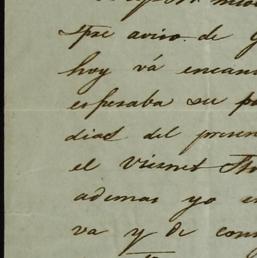 aviso de
hoy vá encam
esperaba su p
dias del presen
el Viernes
ademas yo e
va y de com